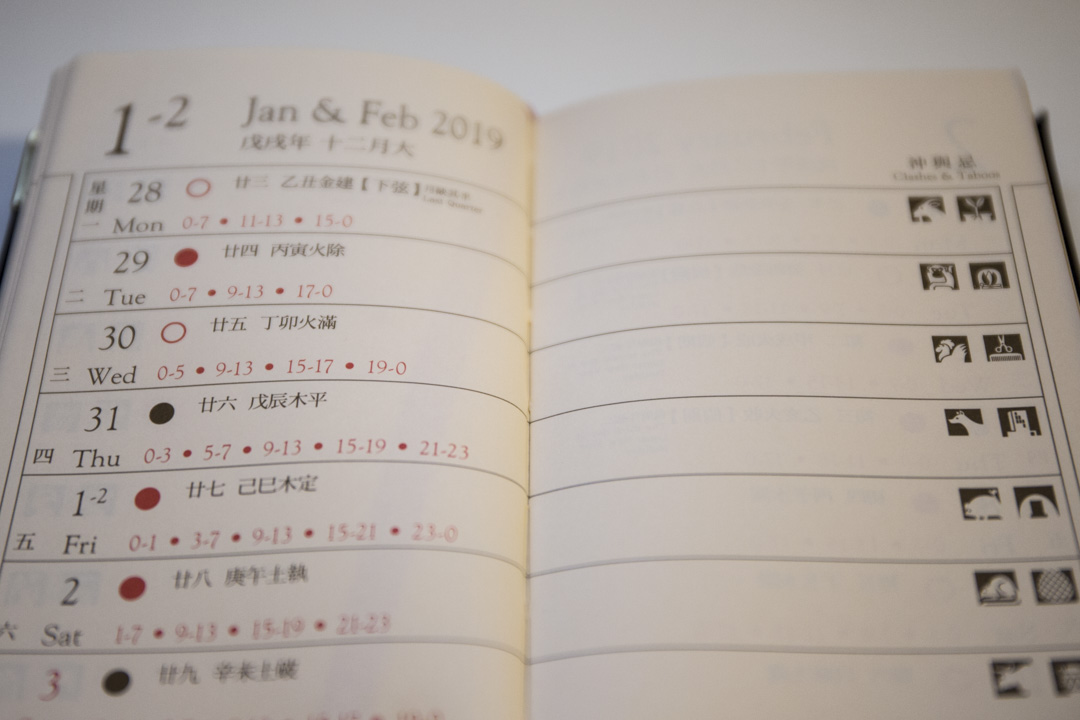 1-2 Jan & Feb 2019
戊戌年 十二月大
沖與忌
Clashes & Taboos
星期
28 廿三 乙丑金建【下弦】
Last Quarter
一 Mon 0-7 • 11-13 • 15-0
29 廿四 丙寅火除
二 Tue 0-7 • 9-13 • 17-0
30 廿五 丁卯火滿
三 Wed 0-5 • 9-13 • 15-17 • 19-0
31 廿六 戊辰木平
四 Thu 0-3 • 5-7 • 9-13 • 15-19 • 21-23
1-2 廿七 己巳木定
五 Fri 0-1 • 3-7 • 9-13 • 15-21 • 23-0
2 廿八 庚午土執
六 Sat 1-7 • 9-13 • 15-19 • 21-23
3 廿九 辛未土破